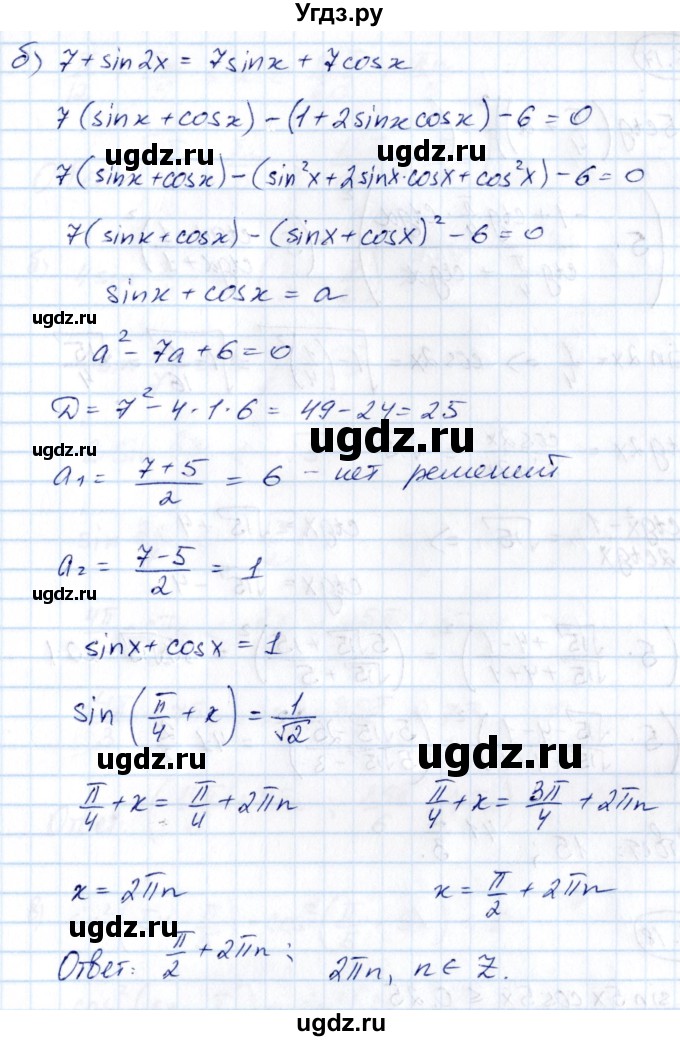 Угдз.ру
б) 7 + sin2x = 7sinx + 7cosx
7(sinx + cosx) - (1 + 2sinxcosx) - 6 = 0
ugdz.ru
ugdz.ru
7(sinx + cosx) - (sin²x + 2sinx·cosx + cos²x) - 6 = 0
7(sinx + cosx) - (sinx + cosx)² - 6 = 0
sinx + cosx = a
ugdz.ru
a² - 7a + 6 = 0
D = 7² - 4·1·6 = 49 - 24 = 25
ugdz.ru
ugdz.ru
a₁ = (7+5)/2 = 6 - нет решений
a₂ = (7-5)/2 = 1
ugdz.ru
sinx + cosx = 1
sin(π/4 + x) = 1/√2
ugdz.ru
ugdz.ru
π/4 + x = π/4 + 2πn π/4 + x = 3π/4 + 2πn
x = 2πn x = π/2 + 2πn
ugdz.ru
ugdz.ru
Ответ: π/2 + 2πn; 2πn, n ∈ Z.
ugdz.ru